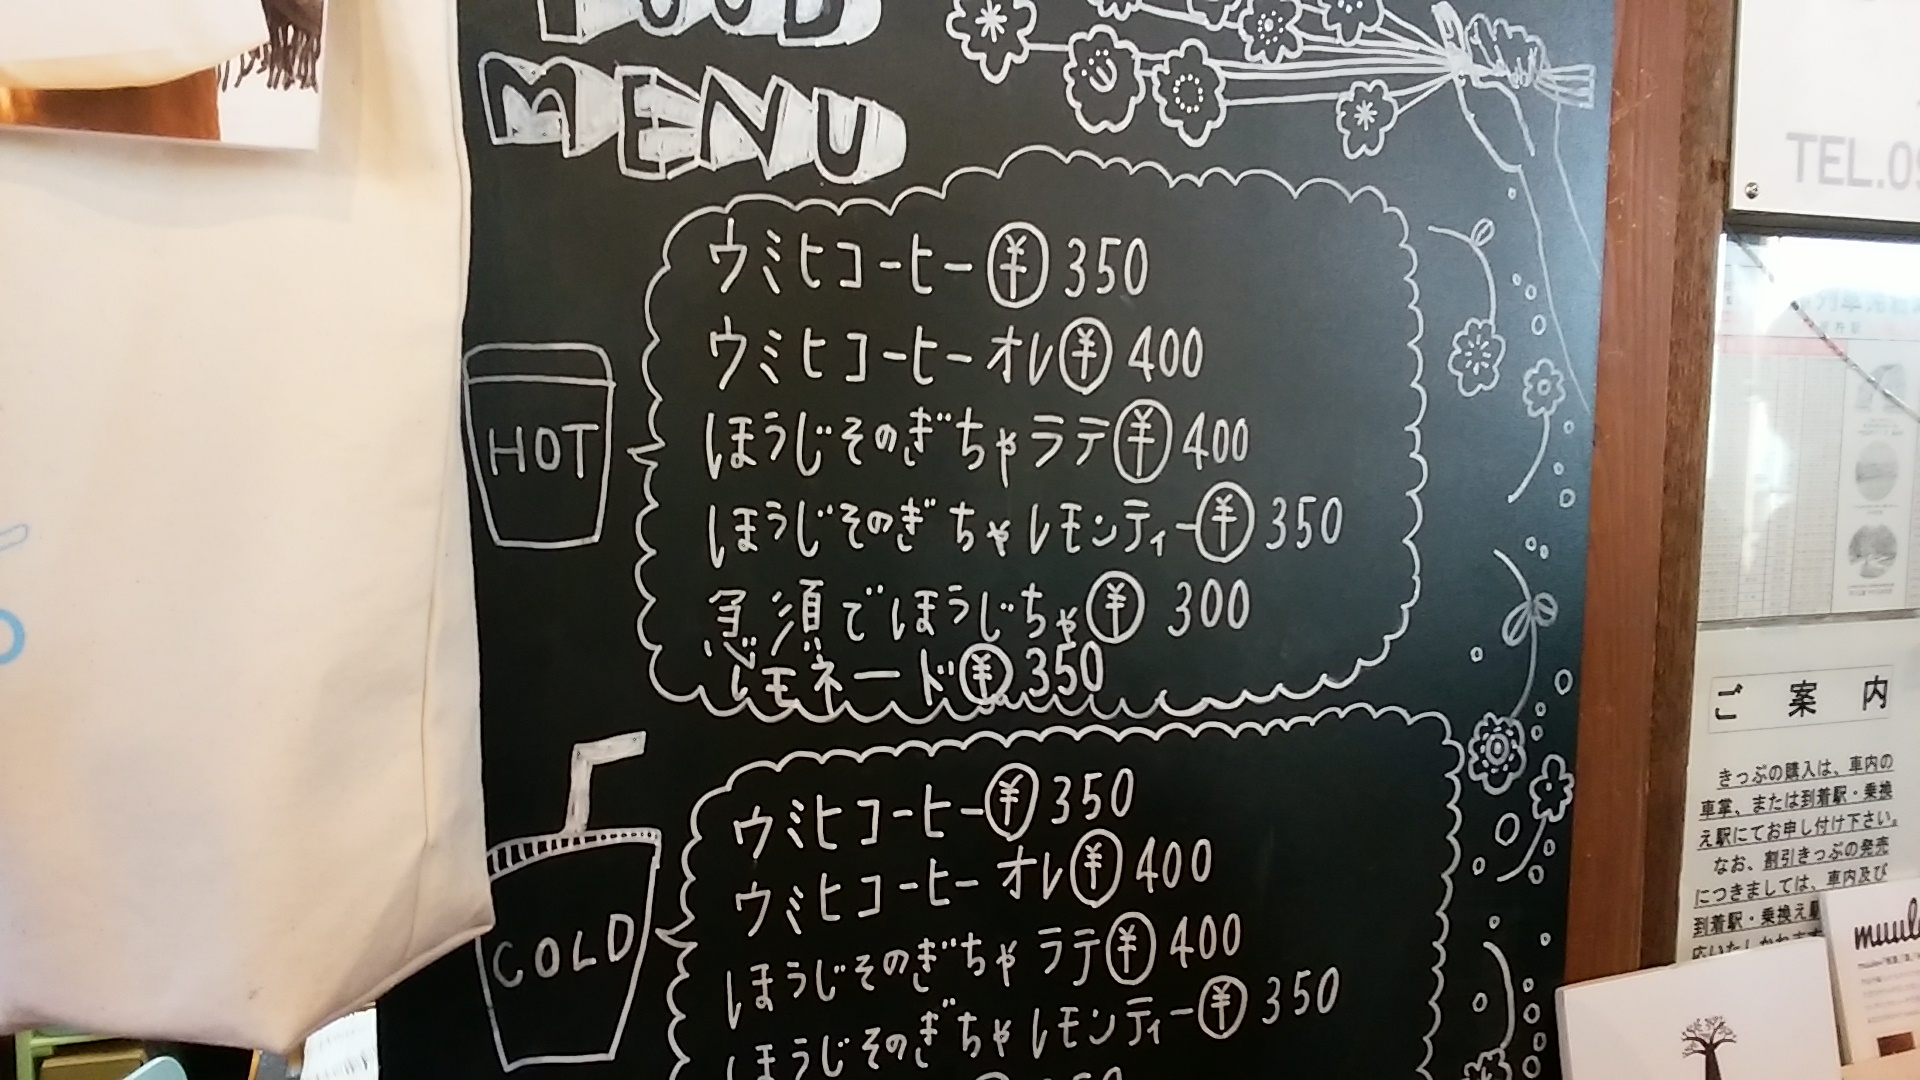 FOOD
MENU
HOT
ウミヒコーヒー ¥ 350
ウミヒコーヒーオレ ¥ 400
ほうじそのぎちゃラテ ¥ 400
ほうじそのぎちゃレモンティー ¥ 350
急須でほうじちゃ ¥ 300
レモネード ¥ 350
COLD
ウミヒコーヒー ¥ 350
ウミヒコーヒーオレ ¥ 400
ほうじそのぎちゃラテ ¥ 400
ほうじそのぎちゃレモンティー ¥ 350
TEL.09
ご案内
きっぷの購入は、車内の
車掌、または到着駅・乗換
え駅にてお申し付け下さい。
なお、割引きっぷの発売
につきましては、車内及び
到着駅・乗換え駅